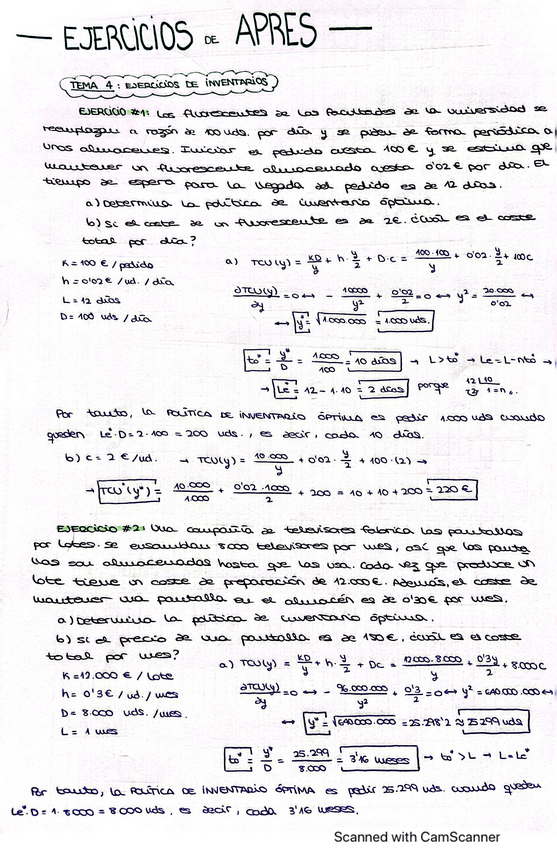 — EJERCICIOS DE APRES —
TEMA 4: EJERCICIOS DE INVENTARIOS
EJERCICIO #1: Los fluorescentes de las facultades de la universidad se
reemplazan a razón de 100 uds. por día y se piden de forma periódica a
unos almacenes. Iniciar el pedido cuesta 100 € y se estima que
mantener un fluorescente almacenado cuesta 0'02 € por día. El
tiempo de espera para la llegada del pedido es de 12 días.
a) Determina la política de inventario óptima.
b) Si el coste de un fluorescente es de 2€. ¿cuál es el coste
total por día?
K = 100 € / pedido
h = 0'02 € / ud. / día
L = 12 días
D = 100 uds / día
a) TCU(y) = KD/y + h · y/2 + D·c = 100·100/y + 0'02 · y/2 + 100c
∂TCU(y)/∂y = 0 ↔ - 10000/y² + 0'02/2 = 0 ↔ y² = 20.000/0'02 ↔
↔ y* = √1.000.000 = 1.000 uds.
to* = y*/D = 1.000/100 = 10 días → L > to* → Le = L - nto* →
→ Le* = 12 - 1·10 = 2 días porque 12 |10 2 1 = n.
Por tanto, la POLÍTICA DE INVENTARIO ÓPTIMA es pedir 1.000 uds cuando
queden Le*·D = 2·100 = 200 uds., es decir, cada 10 días.
b) c = 2 € / ud. → TCU(y) = 10.000/y + 0'02 · y/2 + 100·(2) →
→ TCU*(y*) = 10.000/1.000 + 0'02·1000/2 + 200 = 10 + 10 + 200 = 220 €
EJERCICIO #2: Una compañía de televisores fabrica las pantallas
por lotes. Se ensamblan 8000 televisores por mes, así que las panta
llas son almacenadas hasta que las usa. Cada vez que produce un
lote tiene un coste de preparación de 12.000 €. Además, el coste de
mantener una pantalla en el almacén es de 0'30 € por mes.
a) Determina la política de inventario óptima.
b) Si el precio de una pantalla es de 150 €, ¿cuál es el coste
total por mes?
K = 12.000 € / lote
h = 0'3 € / ud. / mes
D = 8.000 uds. / mes.
L = 1 mes
a) TCU(y) = KD/y + h · y/2 + Dc = 12000·8000/y + 0'3y/2 + 8.000c
∂TCU(y)/∂y = 0 ↔ - 96.000.000/y² + 0'3/2 = 0 ↔ y² = 640.000.000 ↔
↔ y* = √640.000.000 = 25.298'2 ≈ 25.299 uds
to* = y*/D = 25.299/8.000 = 3'16 meses → to* > L → L = Le*
Por tanto, la POLÍTICA DE INVENTARIO ÓPTIMA es pedir 25.299 uds. cuando queden
Le*·D = 1·8000 = 8000 uds, es decir, cada 3'16 meses.
Scanned with CamScanner